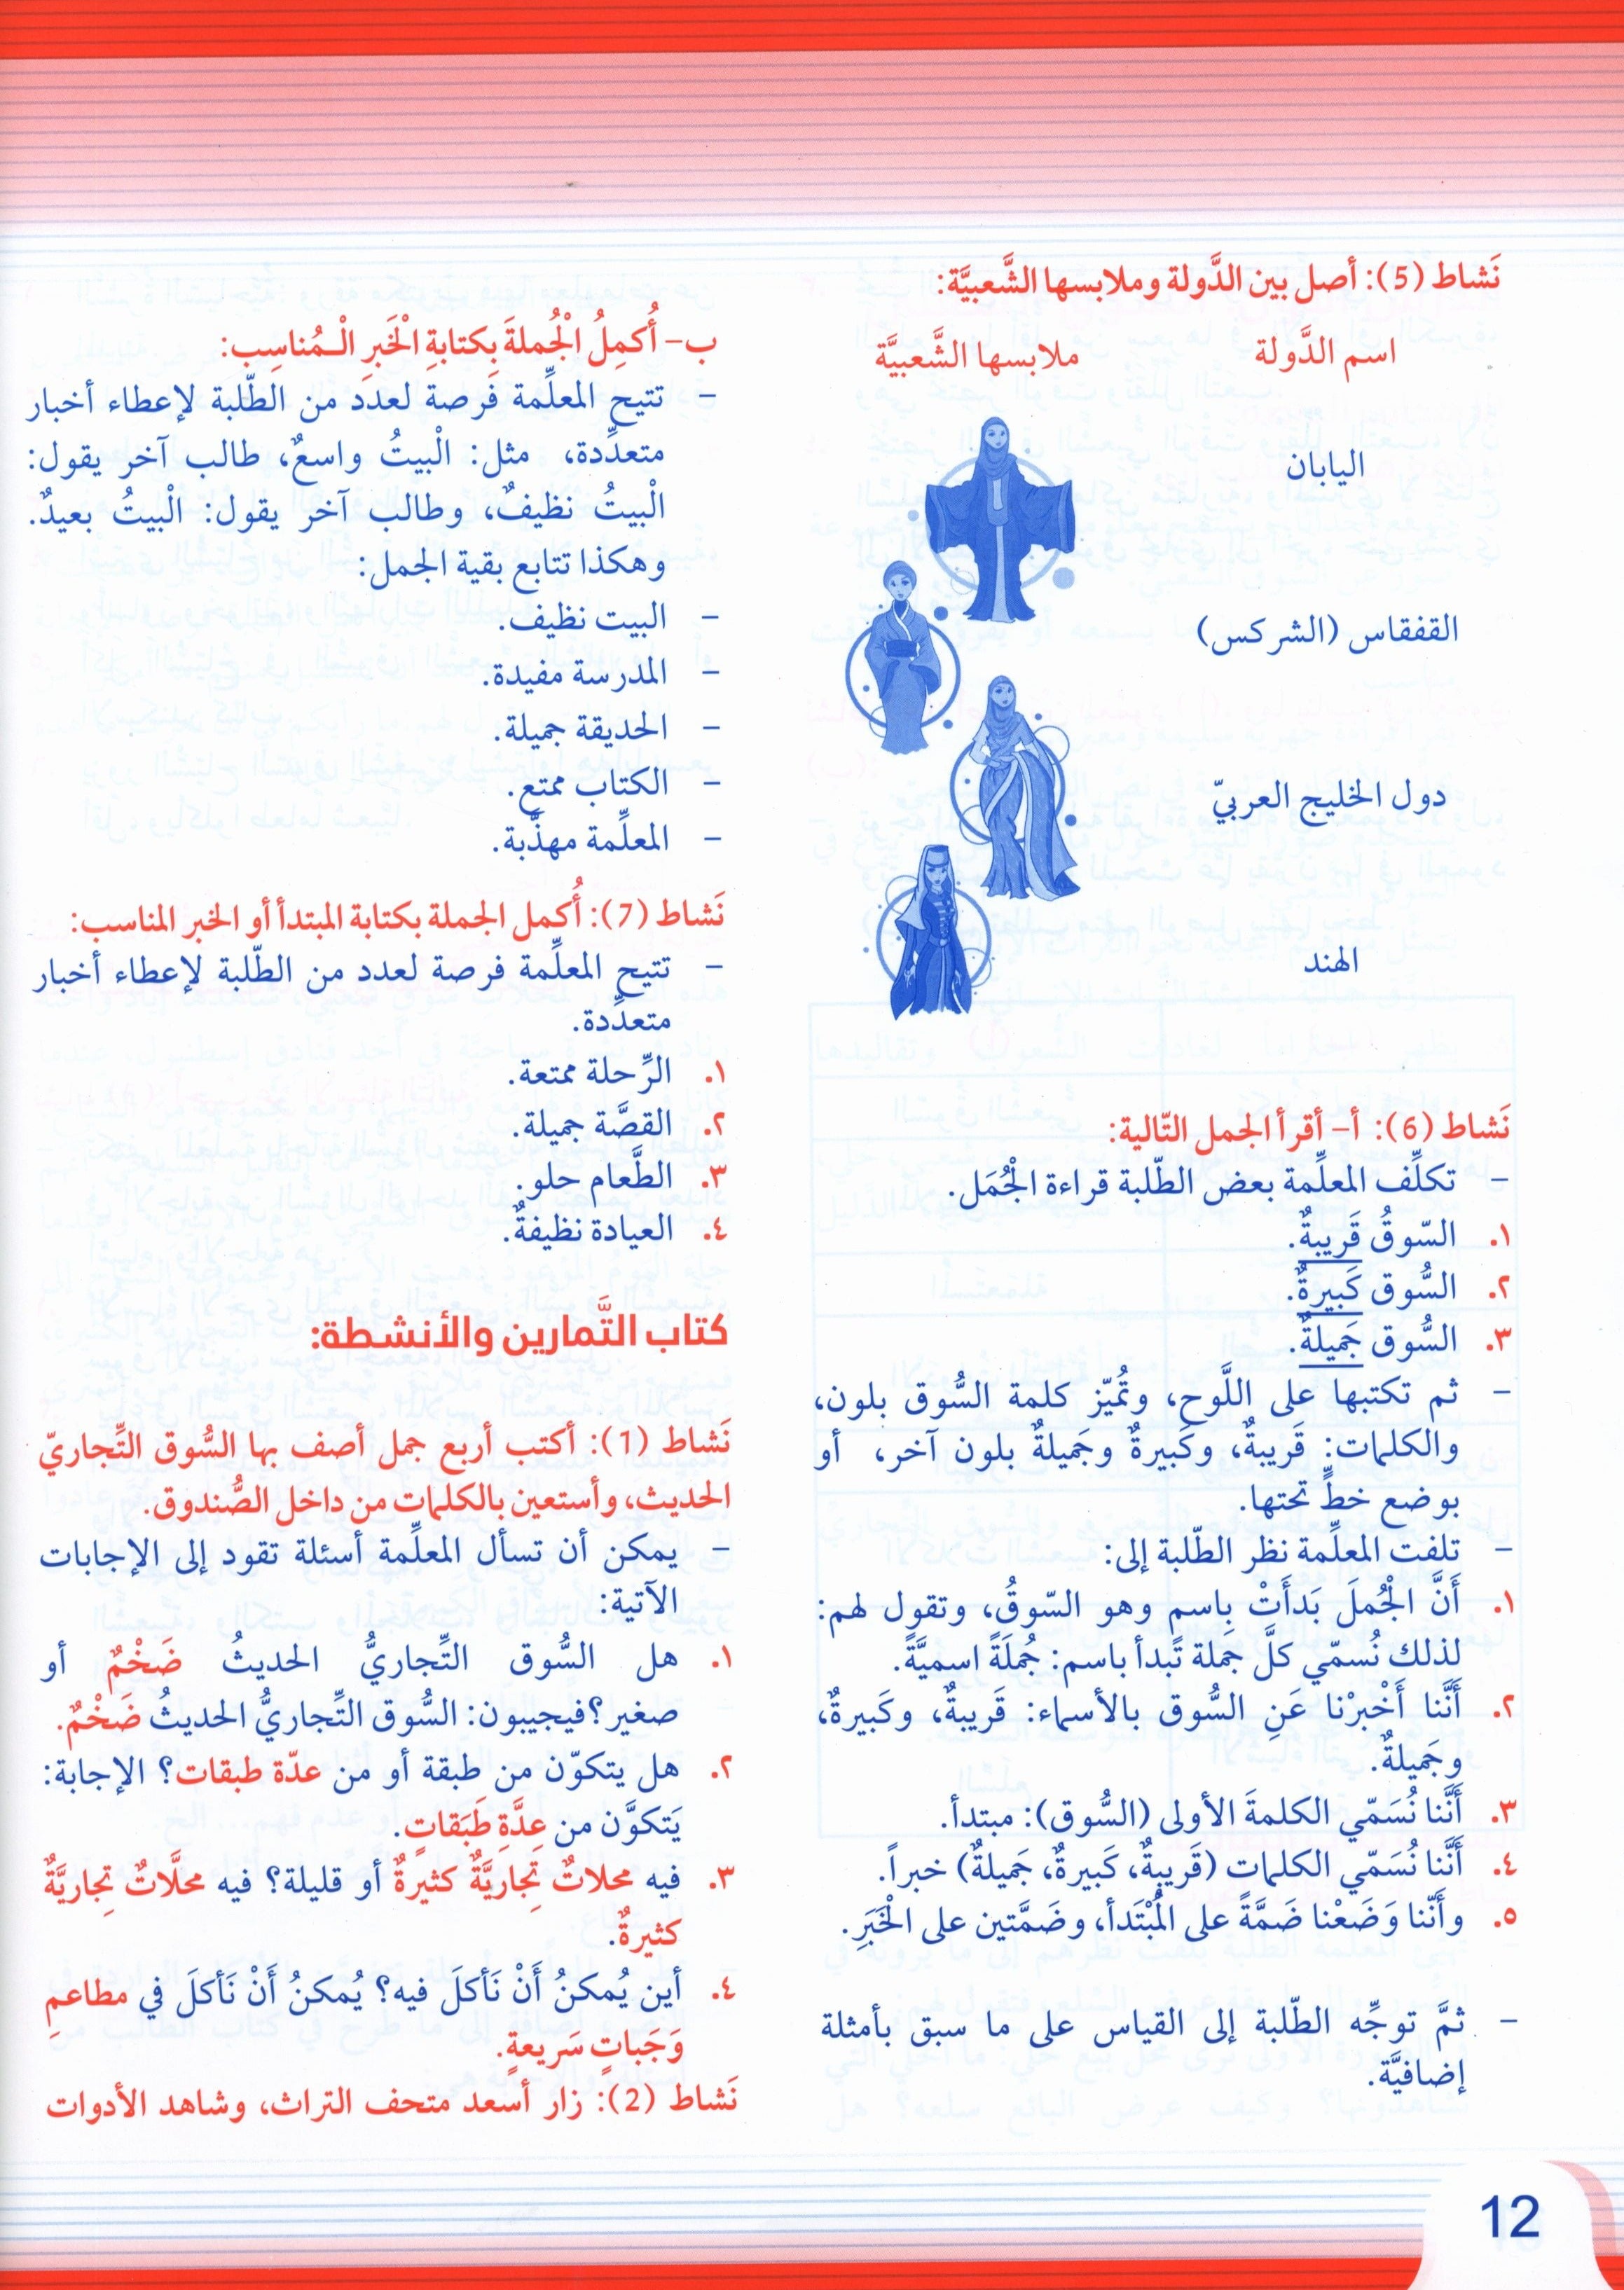 نَشاط (5): أصل بين الدَّولة وملابسها الشَّعبيَّة:
اسم الدَّولة ملابسها الشَّعبيَّة
اليابان
القفقاس (الشركس)
دول الخليج العربيّ
الهند
نَشاط (6): أ- أقرأ الجمل التّالية:
- تكلِّف المعلِّمة بعض الطّلبة قراءة الْجُمَل.
١. السّوقُ قَريبةٌ.
٢. السُّوق كَبيرةٌ.
٣. السُّوق جَميلةٌ.
- ثم تكتبها على اللَّوح، وتُميّز كلمة السُّوق بلون،
والكلمات: قَريبةٌ، وكَبيرةٌ وجَميلةٌ بلون آخر، أو
بوضع خطٍّ تحتها.
- تلفت المعلِّمة نظر الطّلبة إلى:
١. أَنَّ الْجُملَ بَدَأَتْ بِاسمٍ وهو السّوقُ، وتقول لهم:
لذلك نُسمّي كلَّ جملة تَبدأ باسم: جُملَةً اسميَّةً.
٢. أَنَّنا أَخْبرْنا عَنِ السُّوق بالأسماء: قَريبةٌ، وكَبيرةٌ،
وجَميلةٌ.
٣. أَنَّنا نُسَمّي الكلمةَ الأولى (السُّوق): مبتدأ.
٤. أَنَّنا نُسَمّي الكلمات (قَريبةٌ، كَبيرةٌ، جَميلةٌ) خبراً.
٥. وأَنّنا وَضَعْنا ضَمَّةً على المُبْتَدأ، وضَمَّتين على الْخَبَرِ.
- ثمَّ توجِّه الطّلبة إلى القياس على ما سبق بأمثلة
إضافيَّة.
ب- أُكمِلُ الْجُملةَ بِكتابةِ الْخَبرِ الْـمُناسِب:
- تتيح المعلِّمة فرصة لعدد من الطّلبة لإعطاء أخبار
متعدِّدة، مثل: الْبيتُ واسعٌ، طالب آخر يقول:
الْبيتُ نظيفٌ، وطالب آخر يقول: الْبيتُ بعيدٌ.
وهكذا تتابع بقية الجمل:
- البيت نظيف.
- المدرسة مفيدة.
- الحديقة جميلة.
- الكتاب ممتع.
- المعلِّمة مهذّبة.
نَشاط (7): أُكمل الجملة بكتابة المبتدأ أو الخبر المناسب:
- تتيح المعلِّمة فرصة لعدد من الطّلبة لإعطاء أخبار
متعدِّدة.
١. الرِّحلة ممتعة.
٢. القصَّة جميلة.
٣. الطَّعام حلو.
٤. العيادة نظيفةٌ.
كتاب التَّمارين والأنشطة:
نَشاط (1): أكتب أربع جمل أصف بها السُّوق التِّجاريّ
الحديث، وأستعين بالكلمات من داخل الصُّندوق.
- يمكن أن تسأل المعلِّمة أسئلة تقود إلى الإجابات
الآتية:
١. هل السُّوق التِّجاريُّ الحديثُ ضَخْمٌ أو
صغير؟فيجيبون: السُّوق التِّجاريُّ الحديثُ ضَخْمٌ.
٢. هل يتكوّن من طبقة أو من عدّة طبقات؟ الإجابة:
يَتكوَّن من عِدَّةِ طَبَقاتٍ.
٣. فيه محلاتٌ تِجاريَّةٌ كثيرةٌ أو قليلة؟ فيه محلَّاتٌ تِجاريَّةٌ
كثيرةٌ.
٤. أين يُمكنُ أَنْ نَأكلَ فيه؟ يُمكنُ أَنْ نَأكلَ في مطاعمِ
وَجَباتٍ سَريعةٍ.
نَشاط (2): زار أسعد متحف التراث، وشاهد الأدوات
12